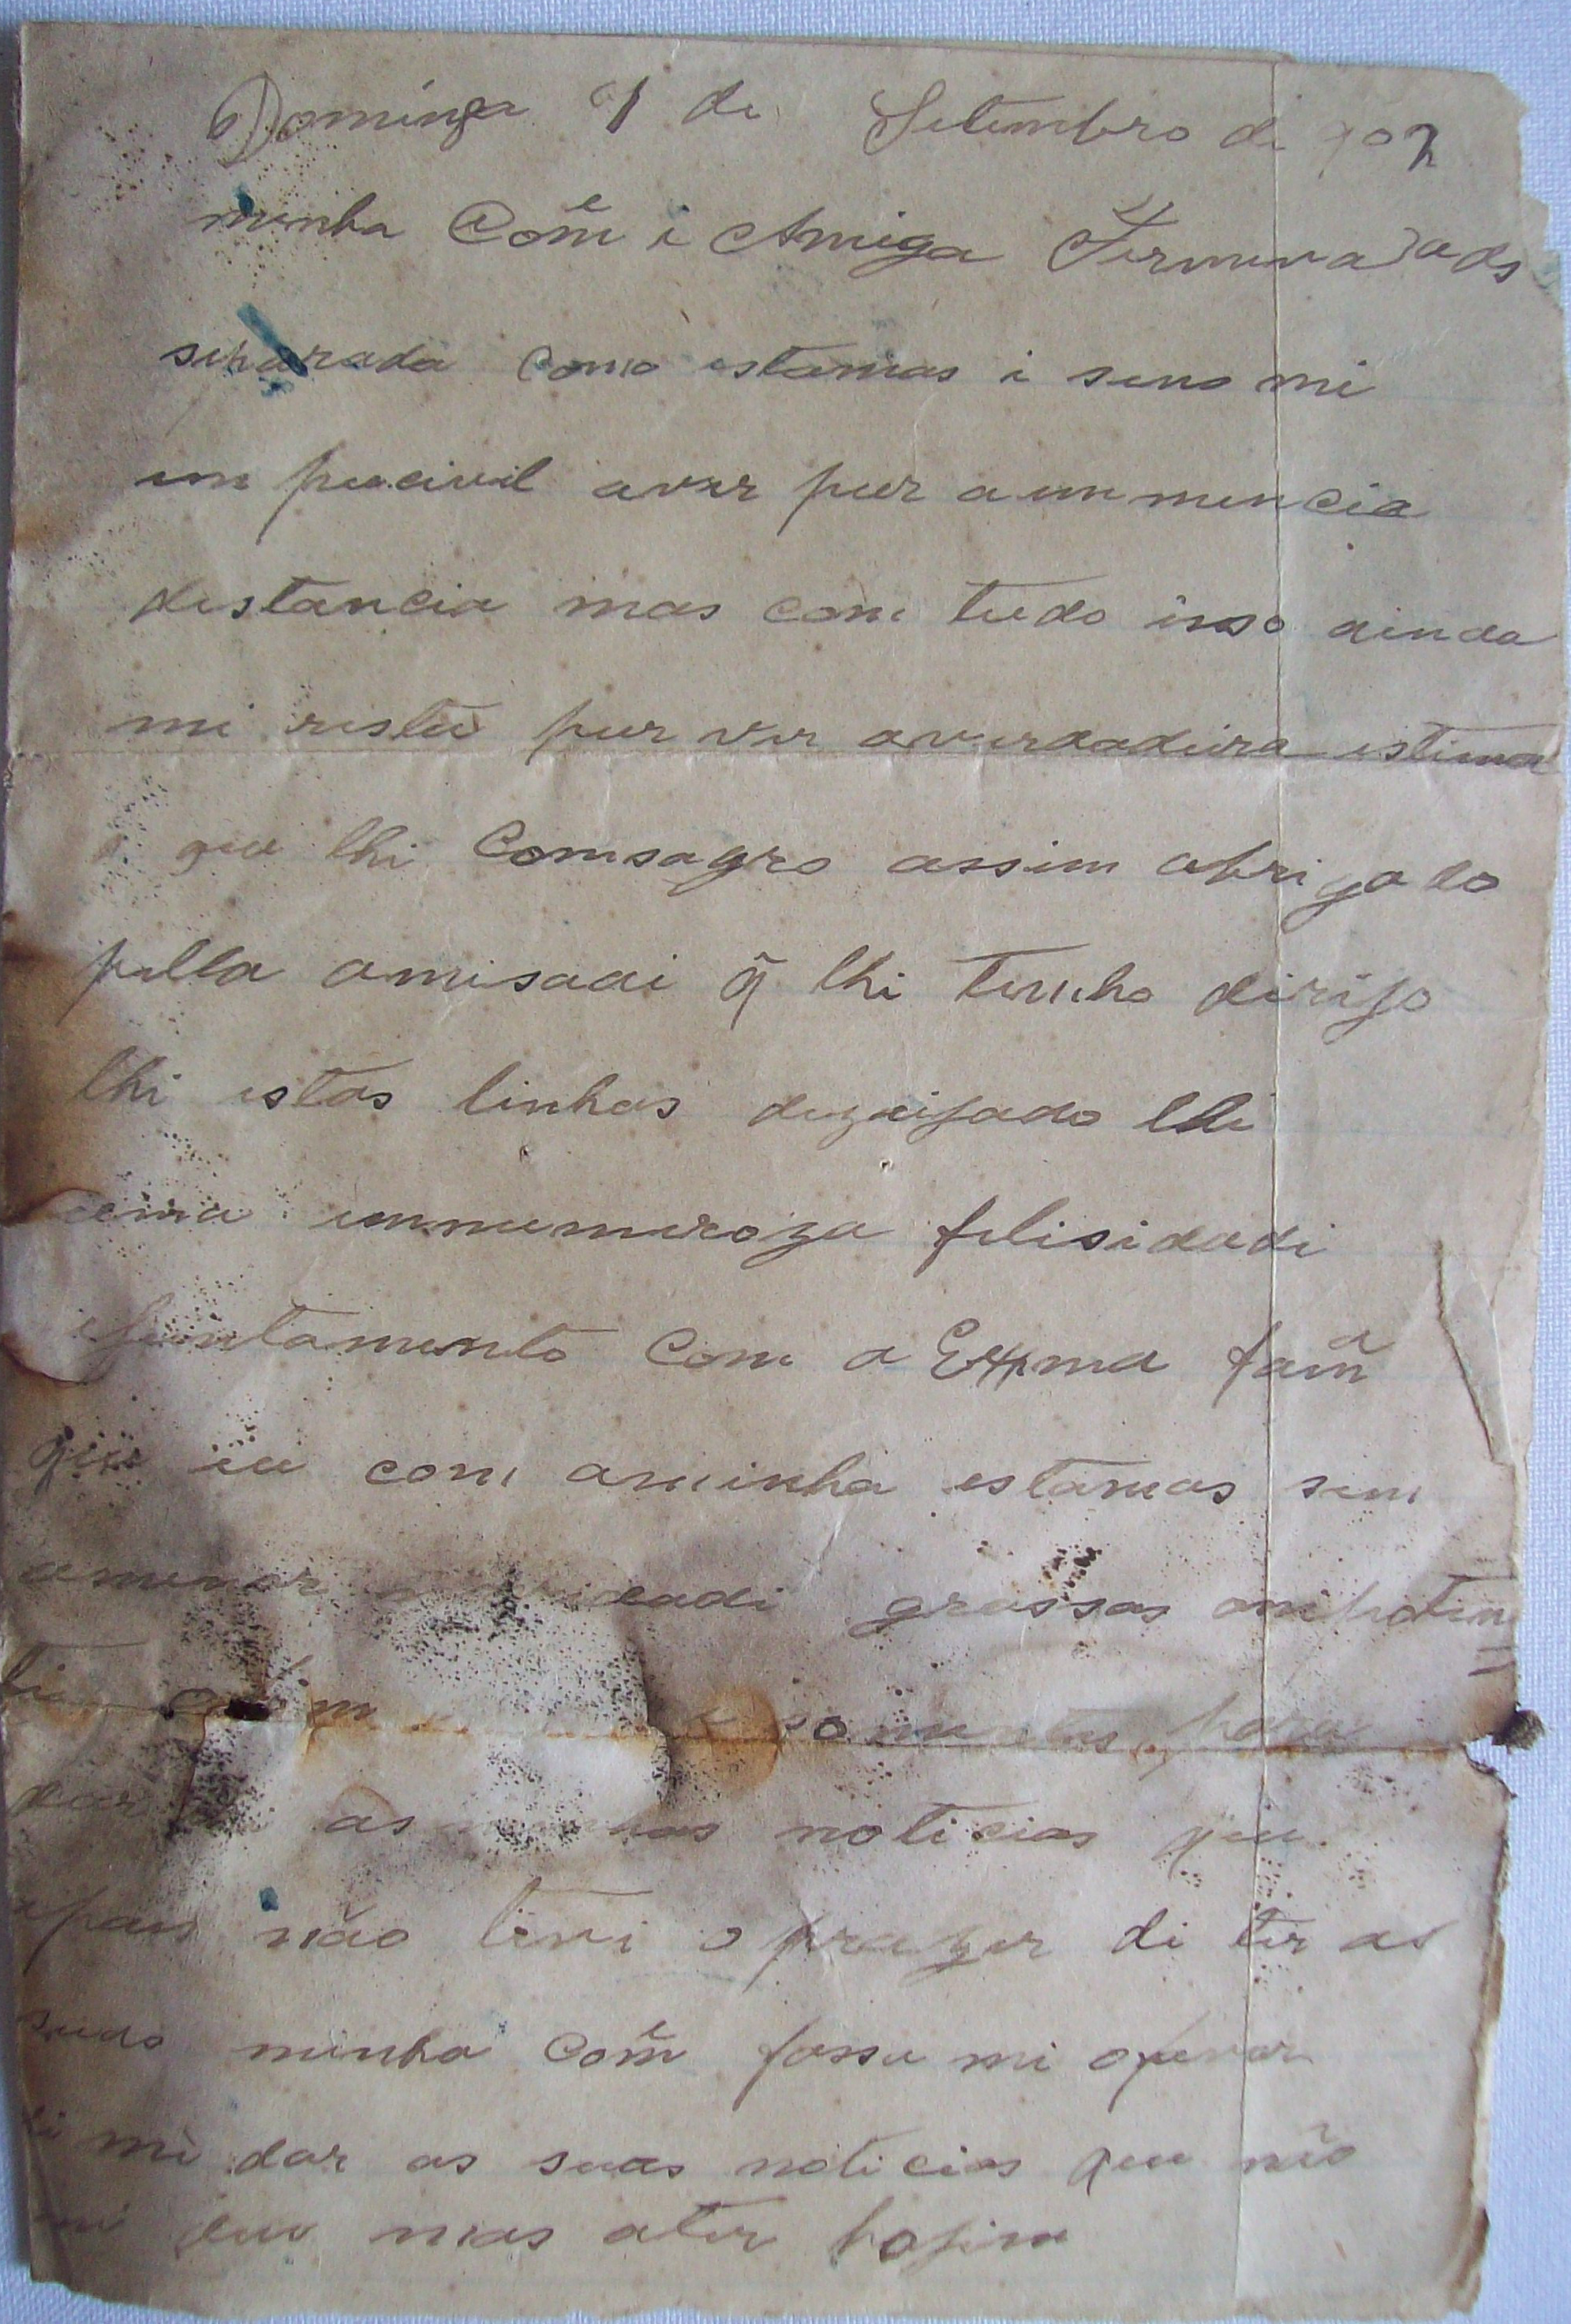 Dominga 1 de Setembro de 902
minha Com̃e i Amiga Firmina
separada como estamas i seno mi
im pucivil aver pur a im mencia
distancia mas com tudo isso ainda
mi resta pur ver averdadeira estima
que lhi Comsagro assim obrigado
pella amisadi q̃ lhi tenho dirijo
lhi estas linhas dezeijado lhi
uma immumeroza felisidadi
juntamento com a Exma fam̃a
que eu com aminha estamas sem
amenor grassas
somentes para
dar as noticias que
não tivi o prazer di ter as
minha Com̃e fassa mi o favor
mi dar as suas noticias que não
deu mas ater hojim